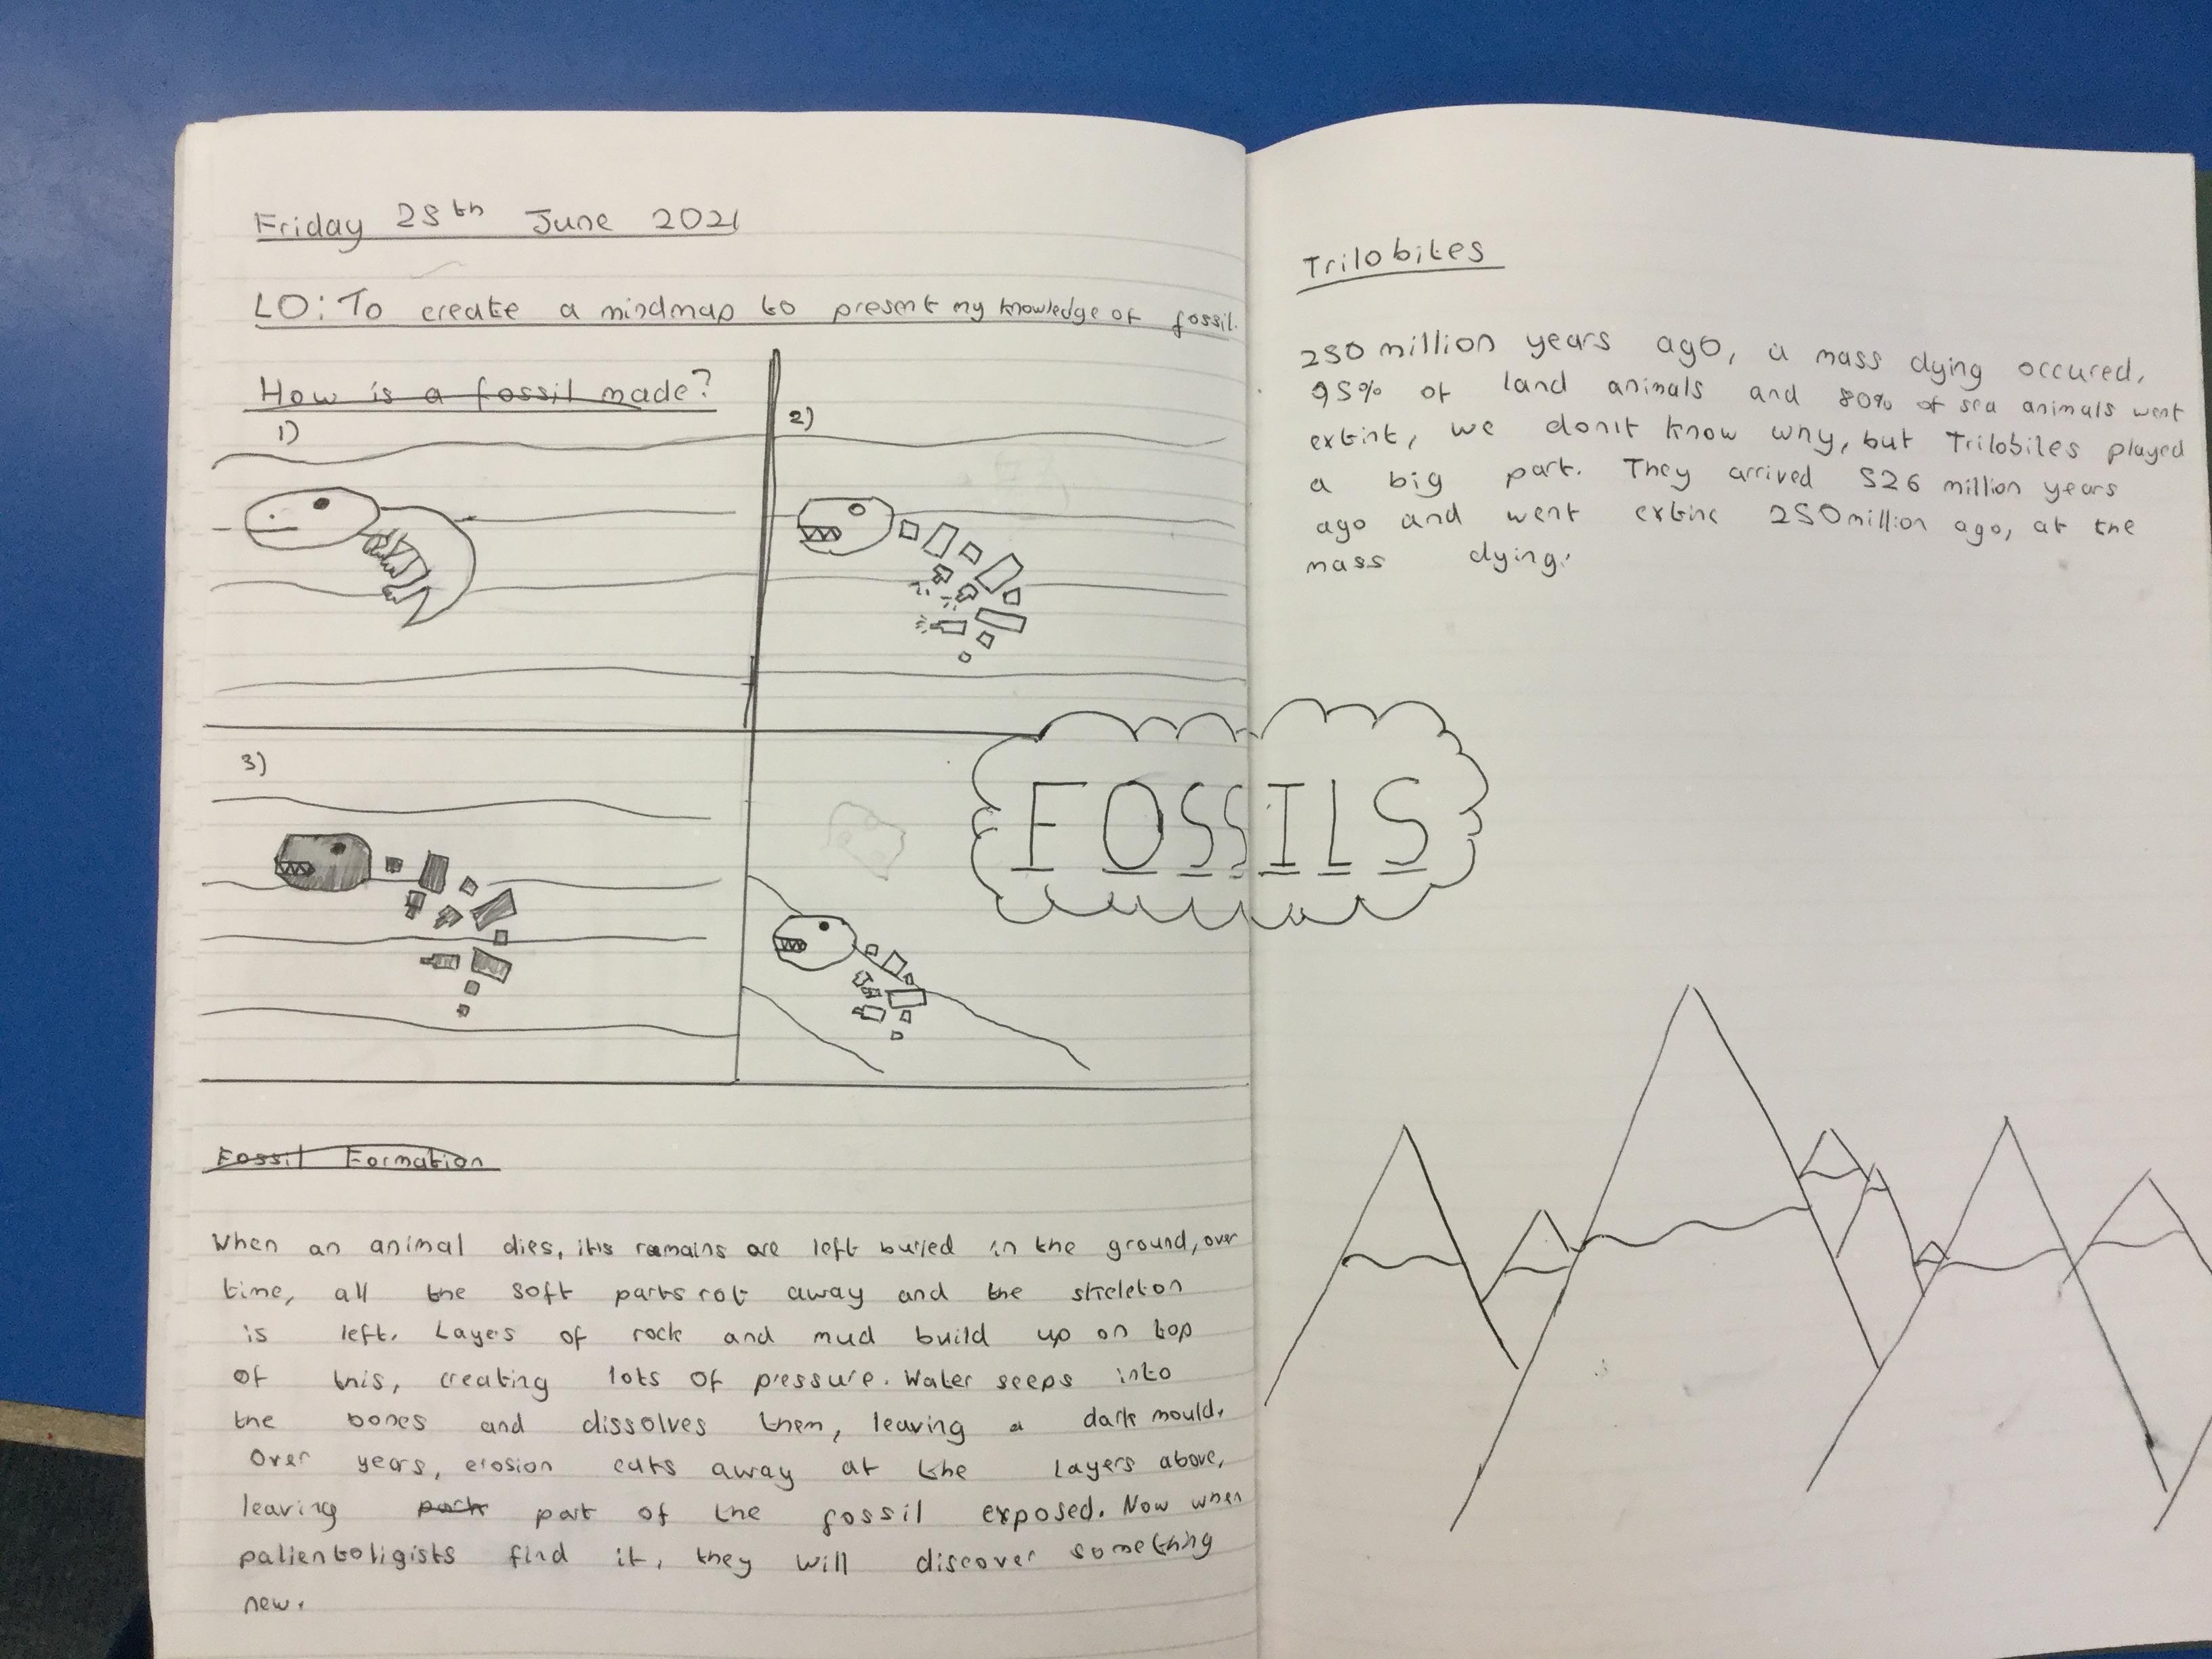 Friday 25th June 2021
LO: To create a mindmap to present my knowledge of fossil.
How is a fossil made?
1)
2)
3)
FOSSILS
Fossil Formation
When an animal dies, it's remains are left buried in the ground, over
time, all the soft parts rot away and the skeleton
is left. Layers of rock and mud build up on top
of this, creating lots of pressure. Water seeps into
the bones and dissolves them, leaving a dark mould.
Over years, erosion eats away at the layers above,
leaving part part of the fossil exposed. Now when
palientoligists find it, they will discover something
new.
Trilobites
250 million years ago, a mass dying occured.
95% of land animals and 80% of sea animals went
extint, we don't know why, but Trilobites played
a big part. They arrived 526 million years
ago and went extinc 250 million ago, at the
mass dying.